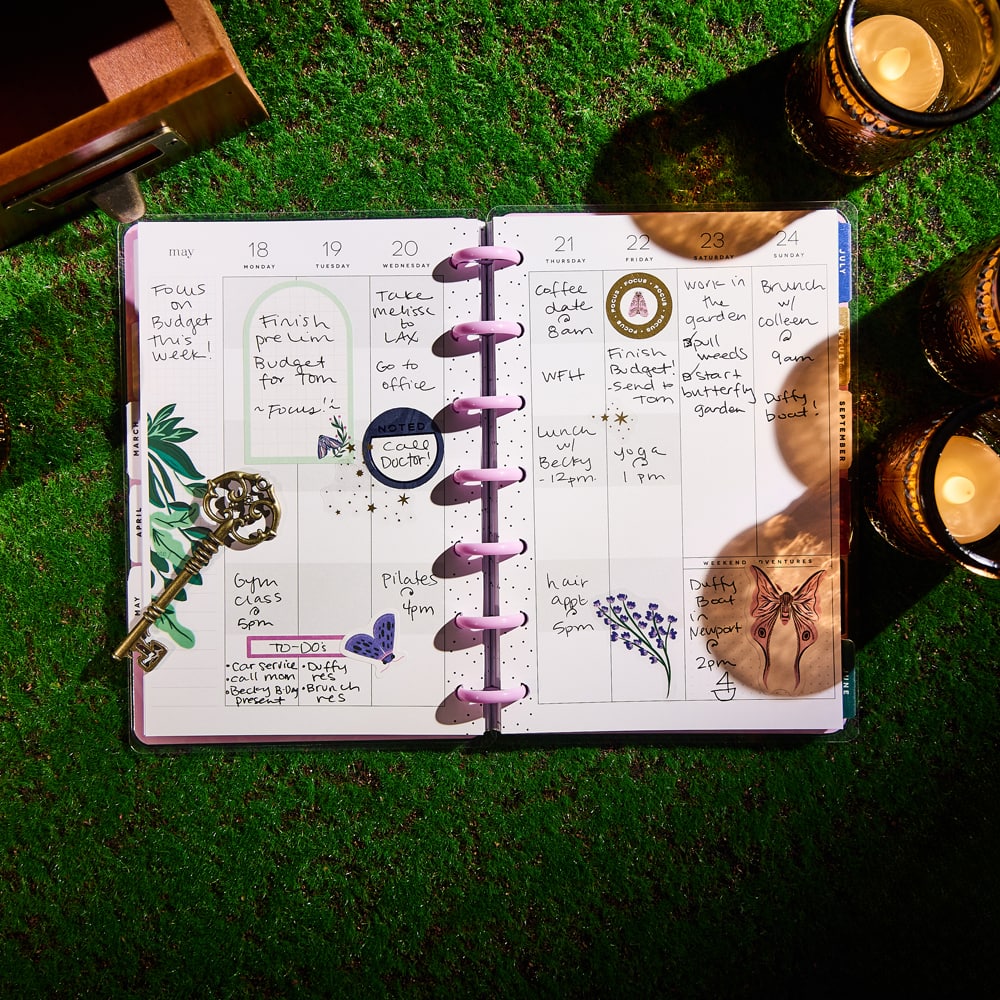 may
18
MONDAY
19
TUESDAY
20
WEDNESDAY
Focus
on
Budget
this
week!
Finish
prelim
Budget
for Tom
~Focus!~
Take
melissa
to
LAX
Go to
office
NOTED
Call
Doctor!
Gym
class
@
5pm
Pilates
@
4pm
TO-DO's
•Car service
•call mom
•Becky B-Day
present
•Duffy
res
•Brunch
res
MARCH
APRIL
MAY
21
THURSDAY
22
FRIDAY
23
SATURDAY
24
SUNDAY
Coffee
date
@
8am
WFH
Lunch
w/
Becky
-12pm.
hair
appt
@
5pm
FOCUS • FOCUS • FOCUS • FOCUS •
Finish
Budget!
-send to
Tom
yoga
@
1 pm
Work in
the
garden
pull
weeds
start
butterfly
garden
Brunch
w/
colleen
@
9am
Duffy
boat!
WEEKEND ADVENTURES
Duffy
Boat
in
Newport
@
2pm
JULY
AUGUST
SEPTEMBER
JUNE